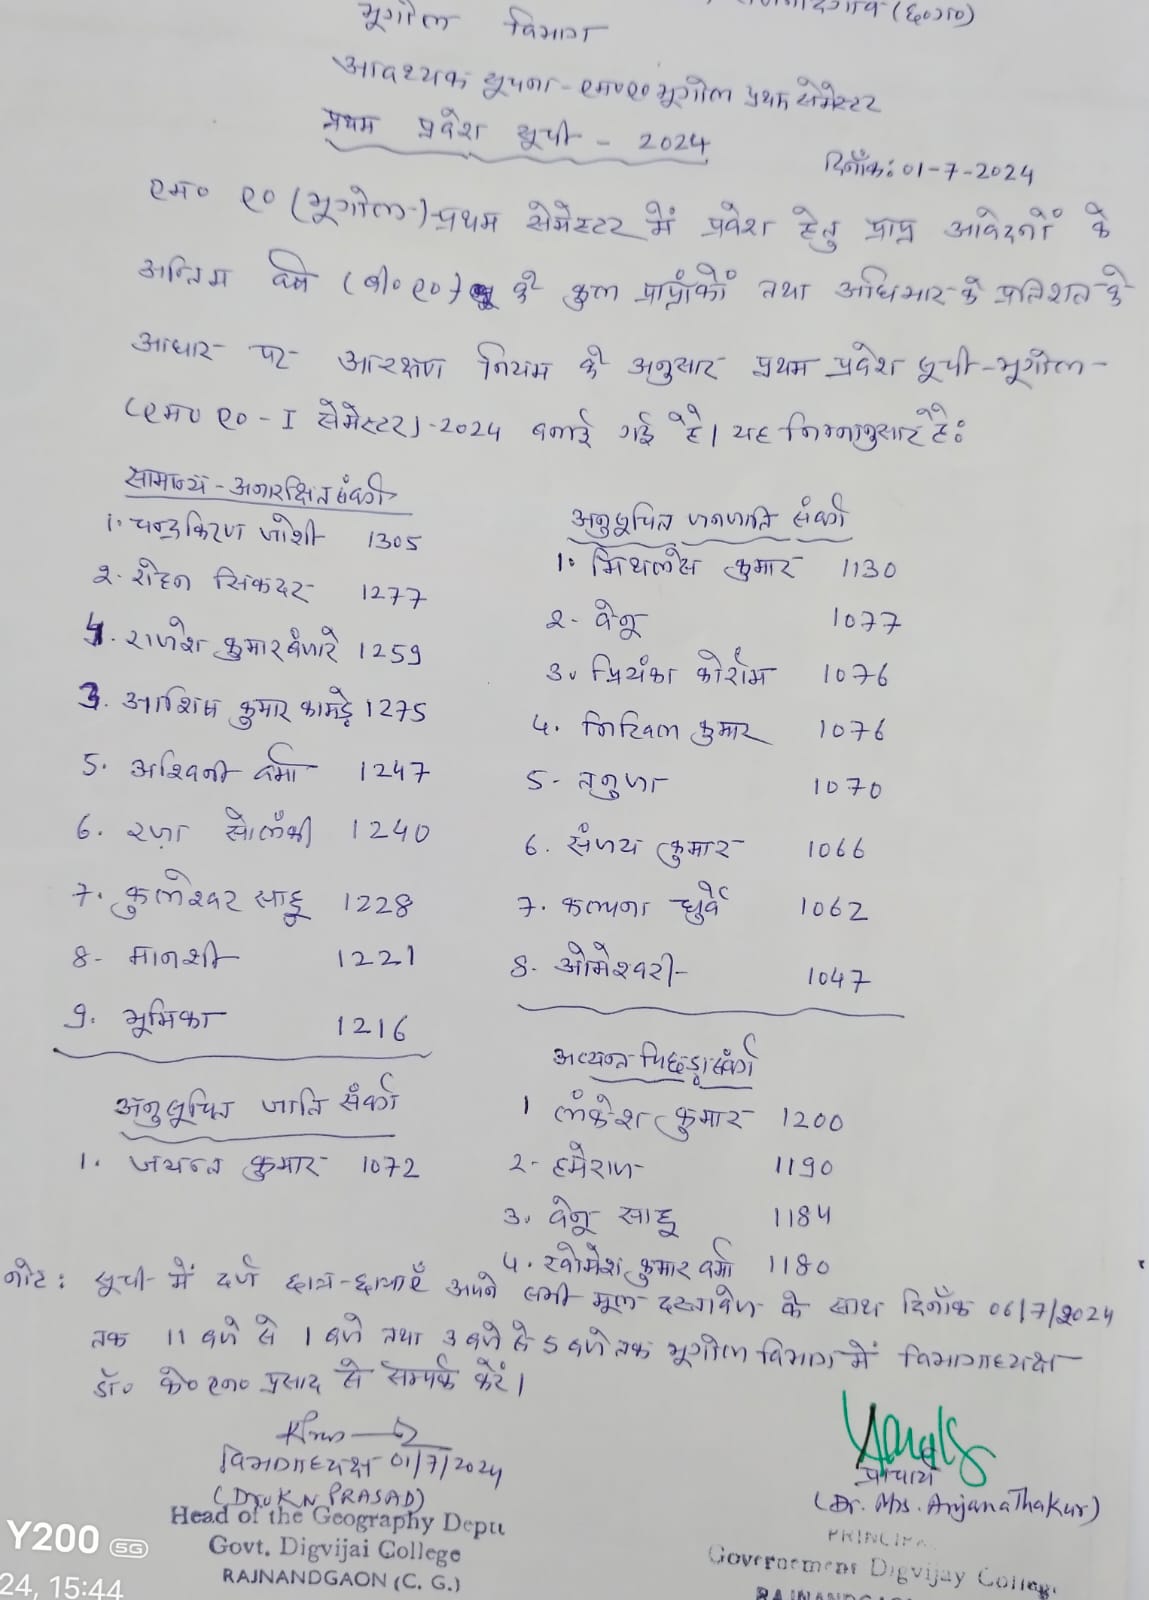 (छ०ग०)
भूगोल विभाग
आवश्यक सूचना - एम०ए० भूगोल प्रथम सेमेस्टर
प्रथम प्रवेश सूची - 2024
दिनाँक: 01-7-2024
एम० ए० (भूगोल) प्रथम सेमेस्टर में प्रवेश हेतु प्राप्त आवेदनों के
अन्तिम वर्ष (बी० ए०) के कुल प्राप्तांकों तथा अधिभार के प्रतिशत के
आधार पर आरक्षण नियम के अनुसार प्रथम प्रवेश सूची - भूगोल -
(एम० ए० - I सेमेस्टर) - 2024 बनाई गई है। यह निम्नानुसार है:
सामान्य - अनारक्षित संवर्ग
1. चन्द्रकिरण जोशी 1305
2. रोहन सिकदर 1277
4. राजेश कुमार बंजारे 1259
3. आशिष कुमार कामड़े 1275
5. अश्विनी वर्मा 1247
6. रज़ा सोलंकी 1240
7. कुलेश्वर साहू 1228
8- मानशी 1221
9. भूमिका 1216
अनुसूचित जाति संवर्ग
1. जयन्त कुमार 1072
अनुसूचित जनजाति संवर्ग
1. मिथलेस कुमार 1130
2- वेनू 1077
3. प्रियंका कोर्राम 1076
4. निखिल कुमार 1076
5- तनुजा 1070
6. संजय कुमार 1066
7. कल्पना धुर्वे 1062
8. ओमेश्वरी 1047
अत्यन्त पिछड़ा संवर्ग
1 लंकेश कुमार 1200
2- हमेराज 1190
3. वेनू साहू 1184
4. खोमेश कुमार वर्मा 1180
नोट: सूची में दर्ज छात्र-छात्राएँ अपने सभी मूल दस्तावेज के साथ दिनाँक 06/7/2024
तक 11 बजे से 1 बजे तथा 3 बजे से 5 बजे तक भूगोल विभाग में विभागाध्यक्ष
डॉ० के० एन० प्रसाद से सम्पर्क करें।
विभागाध्यक्ष 01/7/2024
(Dr. K N PRASAD)
Head of the Geography Deptt
Govt. Digvijai College
RAJNANDGAON (C. G.)
प्राचार्य
(Dr. Mrs. Anjana Thakur)
PRINCIPAL
Government Digvijay College
Y200 5G
24, 15:44